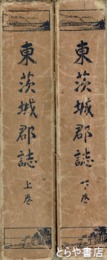 東茨城郡誌 上巻
東茨城郡誌 下巻
とらや書店